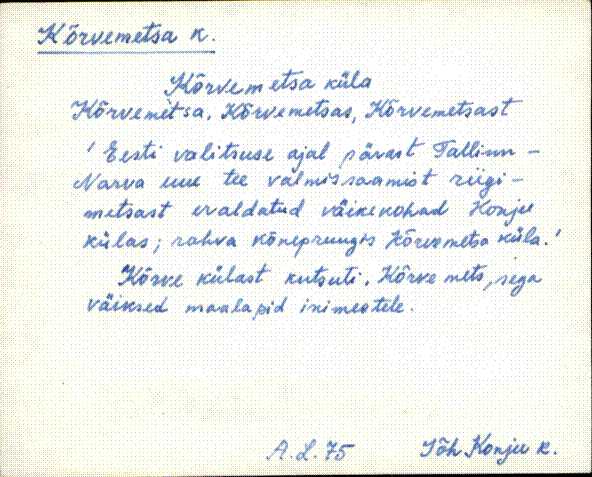 Kõrvemetsa k.
Kõrvemetsa küla
Kõrvemetsa, Kõrvemetsas, Kõrvemetsast
' Eesti valitsuse ajal pärast Tallinn -
Narva uue tee valmissaamist riigi -
metsast eraldatud väikekohad Konju
külas; rahva kõnepruugis Kõrvemetsa küla.'
Kõrve külast kutsuti. Kõrve mets,
väiksed maalapid inimestele.
A.L.75
Jõh Konju k.